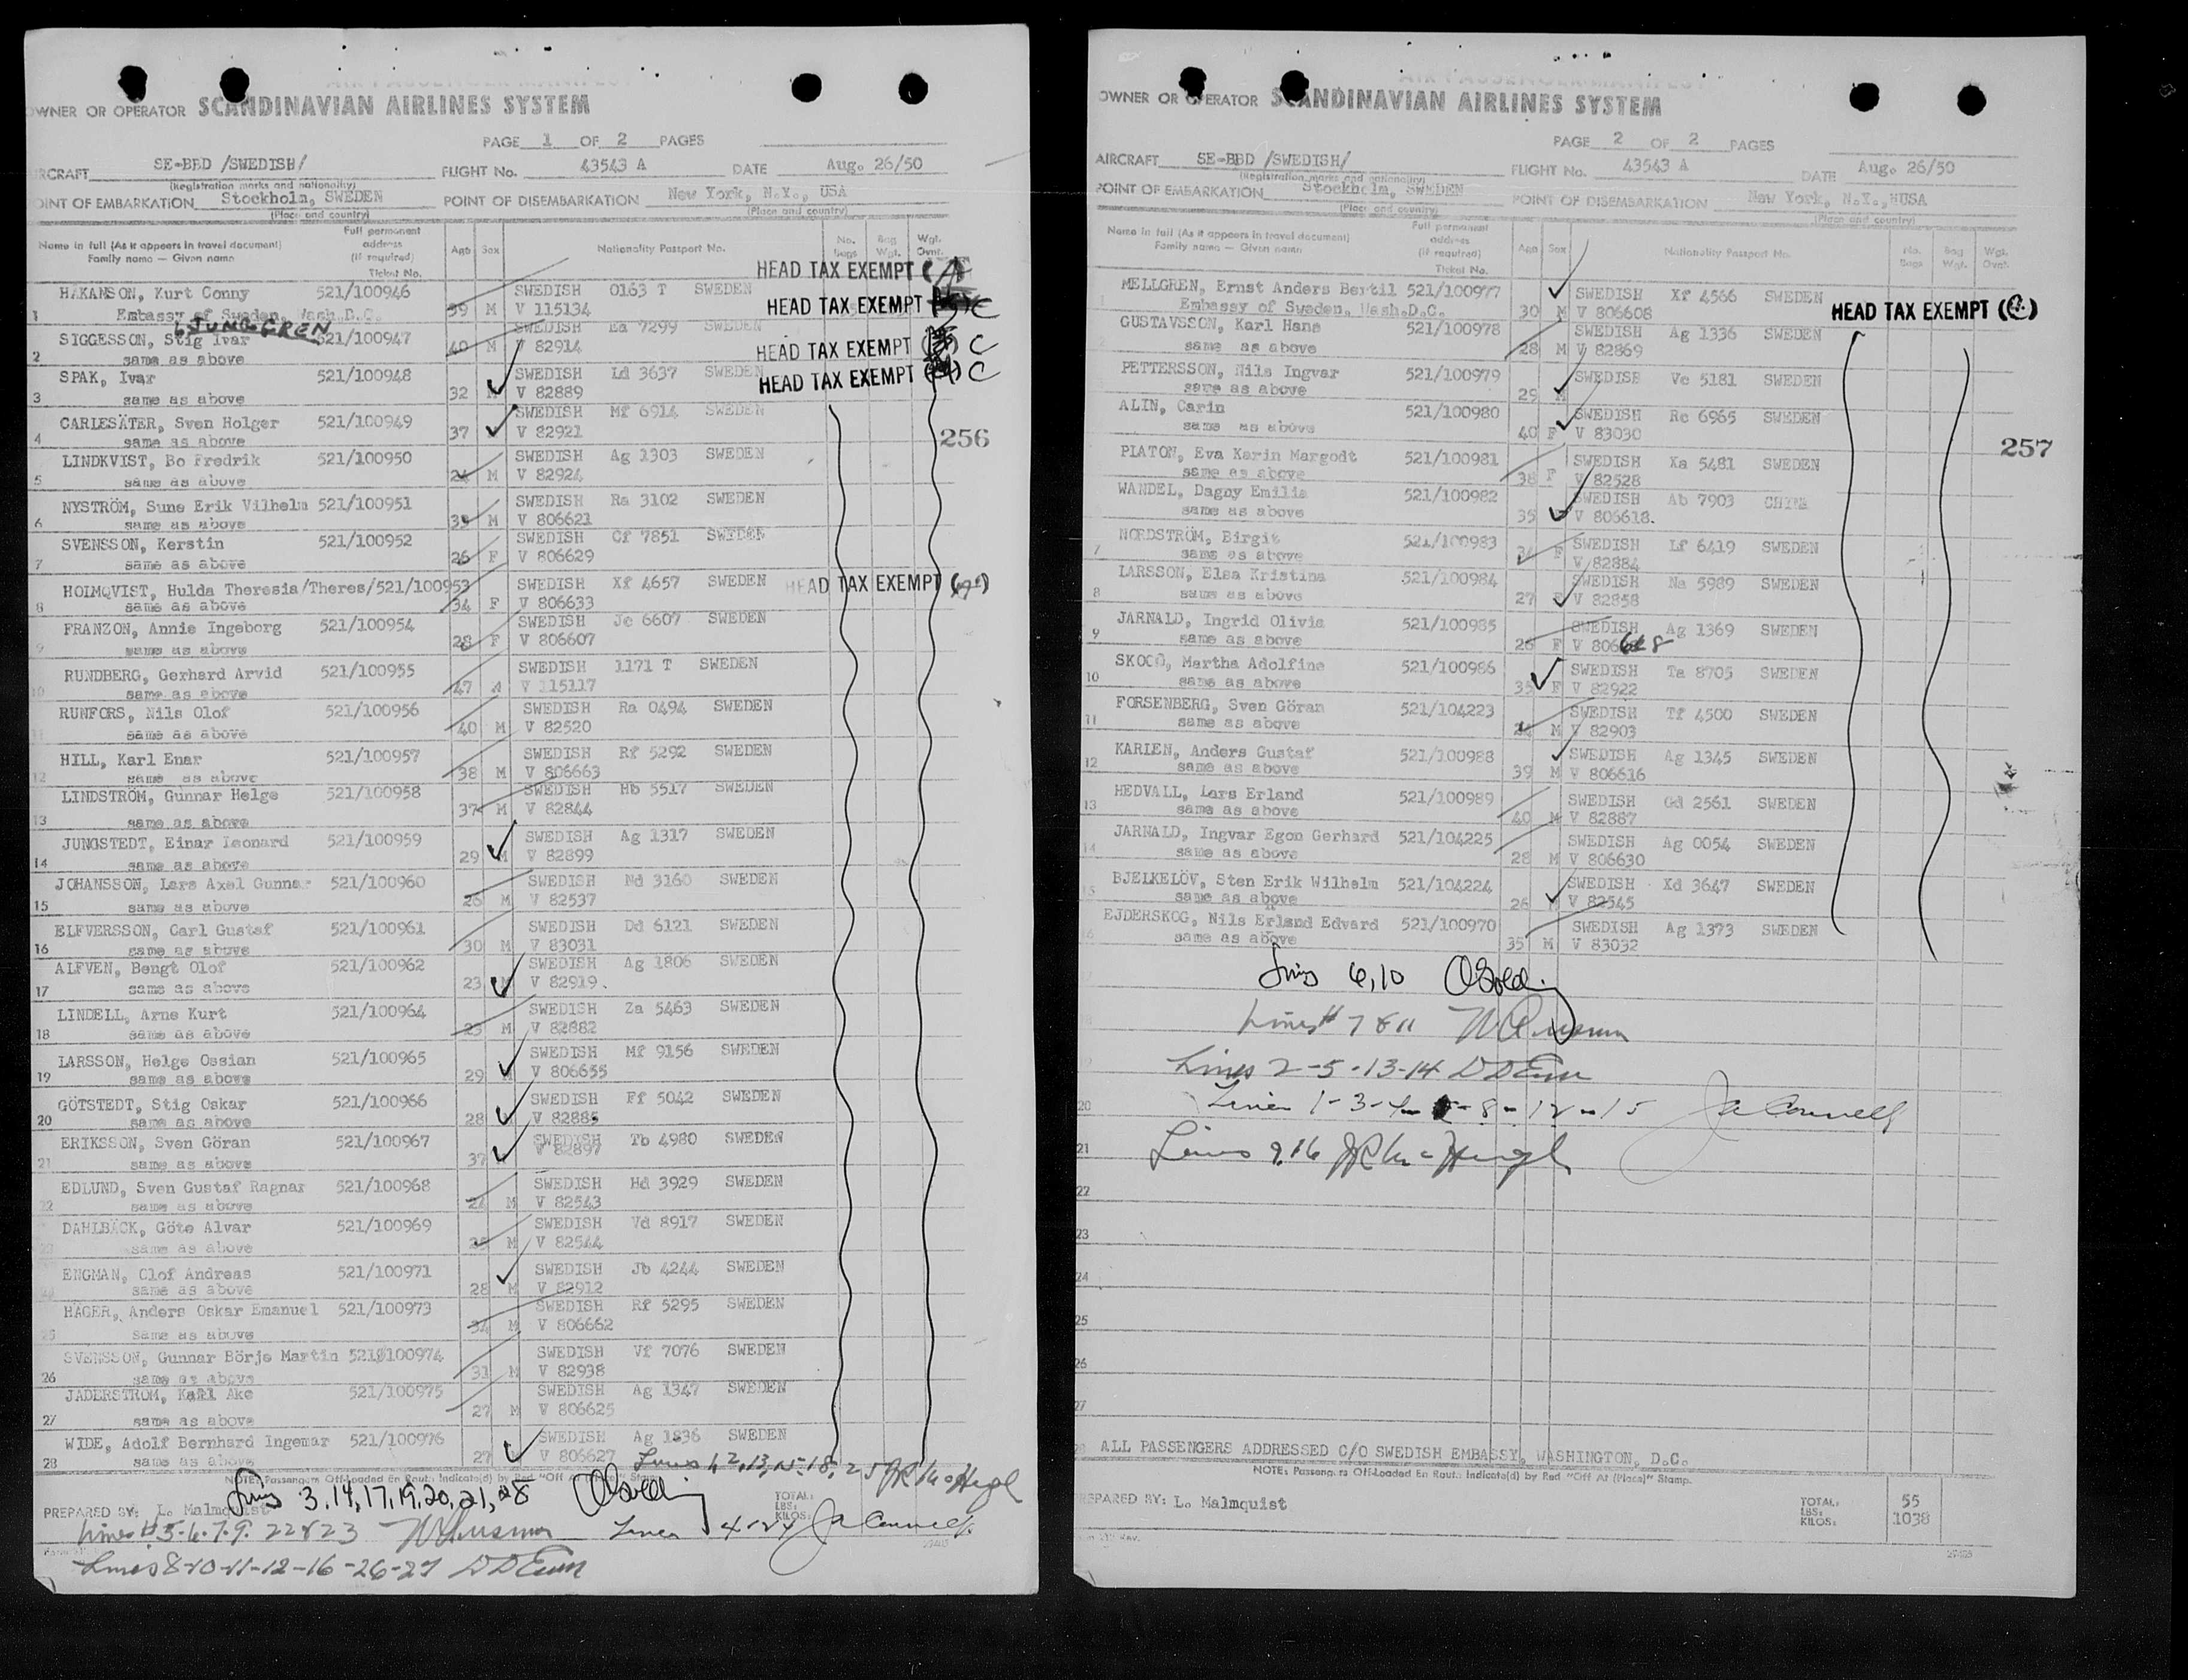 OWNER OR OPERATOR SCANDINAVIAN AIRLINES SYSTEM
PAGE 1 OF 2 PAGES
AIRCRAFT SE-BBD /SWEDISH/ FLIGHT No. 43543 A DATE Aug. 26/50
(Registration marks and nationality)
POINT OF EMBARKATION Stockholm, SWEDEN POINT OF DISEMBARKATION New York, N.Y., USA
(Place and country) (Place and country)
Name in full (As it appears in travel document) Family name — Given name Full permanent address (if required) Ticket No. Age Sex Nationality Passport No. No. Bags Bag Wgt. Wgt. Ovwt.
HEAD TAX EXEMPT
1 HAKANSON, Kurt Conny 521/100946 39 M SWEDISH 0163 T SWEDEN
Embassy of Sweden, Wash.D.C. V 115134 HEAD TAX EXEMPT C
LJUNGGREN
2 SIGGESSON, Stig Ivar 521/100947 40 M SWEDISH Ea 7299 SWEDEN
same as above V 82914 HEAD TAX EXEMPT C
3 SPAK, Ivar 521/100948 32 SWEDISH Ld 3637 SWEDEN
same as above V 82889 HEAD TAX EXEMPT C
4 CARLESÄTER, Sven Holger 521/100949 37 SWEDISH Mf 6914 SWEDEN
same as above V 82921
256
5 LINDKVIST, Bo Fredrik 521/100950 M SWEDISH Ag 1303 SWEDEN
same as above V 82924
6 NYSTRÖM, Sune Erik Vilhelm 521/100951 M SWEDISH Ra 3102 SWEDEN
same as above V 806621
7 SVENSSON, Kerstin 521/100952 26 F SWEDISH Cf 7851 SWEDEN
same as above V 806629
8 HOLMQVIST, Hulda Theresia/Theres/521/100953 34 F SWEDISH Xf 4657 SWEDEN HEAD TAX EXEMPT
same as above V 806633
9 FRANZON, Annie Ingeborg 521/100954 28 F SWEDISH Jc 6607 SWEDEN
same as above V 806607
10 RUNDBERG, Gerhard Arvid 521/100955 47 SWEDISH 1171 T SWEDEN
same as above V 115117
11 RUNFORS, Nils Olof 521/100956 40 M SWEDISH Ra 0494 SWEDEN
same as above V 82520
12 HILL, Karl Enar 521/100957 38 M SWEDISH Rf 5292 SWEDEN
same as above V 806663
13 LINDSTRÖM, Gunnar Helge 521/100958 37 M SWEDISH Hb 5517 SWEDEN
same as above V 82844
14 JUNGSTEDT, Einar Leonard 521/100959 29 SWEDISH Ag 1317 SWEDEN
same as above V 82899
15 JOHANSSON, Lars Axel Gunnar 521/100960 26 M SWEDISH Nd 3160 SWEDEN
same as above V 82537
16 ELFVERSSON, Carl Gustaf 521/100961 30 M SWEDISH Dd 6121 SWEDEN
same as above V 83031
17 ALFVEN, Bengt Olof 521/100962 23 SWEDISH Ag 1806 SWEDEN
same as above V 82919.
18 LINDELL, Arne Kurt 521/100964 M SWEDISH Za 5463 SWEDEN
same as above V 82882
19 LARSSON, Helge Ossian 521/100965 29 SWEDISH Mf 9156 SWEDEN
same as above V 806655
20 GÖTSTEDT, Stig Oskar 521/100966 28 SWEDISH Ff 5042 SWEDEN
same as above V 82885
21 ERIKSSON, Sven Göran 521/100967 SWEDISH Tb 4980 SWEDEN
same as above V 82897
22 EDLUND, Sven Gustaf Ragnar 521/100968 M SWEDISH Hd 3929 SWEDEN
same as above V 82543
23 DAHLBÄCK, Göte Alvar 521/100969 M SWEDISH Vd 8917 SWEDEN
same as above V 82544
24 ENGMAN, Olof Andreas 521/100971 28 M SWEDISH Jb 4244 SWEDEN
same as above V 82912
25 HÄGER, Anders Oskar Emanuel 521/100973 M SWEDISH Rf 5295 SWEDEN
same as above V 806662
26 SVENSSON, Gunnar Börje Martin 521/100974 31 M SWEDISH Vf 7076 SWEDEN
same as above V 82938
27 JADERSTROM, Karl Ake 521/100975 27 M SWEDISH Ag 1347 SWEDEN
same as above V 806625
28 WIDE, Adolf Bernhard Ingemar 521/100976 27 SWEDISH Ag 1836 SWEDEN
same as above V 806627
NOTE: Passengers Off-Loaded En Route Indicated by Red "Off At (Place)" Stamp.
Lines 3,14,17,19,20,21,28
PREPARED BY: L. Malmquist TOTAL: LBS: KILOS:
Lines # 5-6-7-9-22&23 Lines 4-24
Lines 8-10-11-12-16-26-27
OWNER OR OPERATOR SCANDINAVIAN AIRLINES SYSTEM
PAGE 2 OF 2 PAGES
AIRCRAFT SE-BBD /SWEDISH/ FLIGHT No. 43543 A DATE Aug. 26/50
(Registration marks and nationality)
POINT OF EMBARKATION Stockholm, SWEDEN POINT OF DISEMBARKATION New York, N.Y.,HUSA
(Place and country) (Place and country)
Name in full (As it appears in travel document) Family name — Given name Full permanent address (if required) Ticket No. Age Sex Nationality Passport No. No. Bags Bag Wgt. Wgt. Ovwt.
1 MELLGREN, Ernst Anders Bertil 521/100977 30 M SWEDISH Xf 4566 SWEDEN
Embassy of Sweden, Wash.D.C. V 806608 HEAD TAX EXEMPT
2 GUSTAVSSON, Karl Hans 521/100978 28 M SWEDISH Ag 1336 SWEDEN
same as above V 82869
PETTERSSON, Nils Ingvar 521/100979 29 SWEDISH Vc 5181 SWEDEN
same as above
ALIN, Carin 521/100980 40 F SWEDISH Rc 6965 SWEDEN
same as above V 83030
257
PLATON, Eva Karin Margodt 521/100981 38 F SWEDISH Ka 5481 SWEDEN
same as above V 82528
WANDEL, Dagny Emilia 521/100982 35 SWEDISH Ab 7903 CHINA
same as above V 806618.
7 NORDSTRÖM, Birgit 521/100983 F SWEDISH Lf 6419 SWEDEN
same as above V 82884
8 LARSSON, Elsa Kristina 521/100984 27 SWEDISH Na 5989 SWEDEN
same as above V 82858
9 JARNALD, Ingrid Olivia 521/100985 26 F SWEDISH Ag 1369 SWEDEN
same as above
10 SKOCO, Martha Adolfina 521/100986 35 F SWEDISH Ta 8705 SWEDEN
same as above V 82922
11 FORSENBERG, Sven Göran 521/104223 M SWEDISH Tf 4500 SWEDEN
same as above V 82903
12 KARLEN, Anders Gustaf 521/100988 39 M SWEDISH Ag 1345 SWEDEN
same as above V 806616
13 HEDVALL, Lars Erland 521/100989 40 M SWEDISH Gd 2561 SWEDEN
same as above V 82887
14 JARNALD, Ingvar Egon Gerhard 521/104225 28 M SWEDISH Ag 0054 SWEDEN
same as above V 806630
15 BJELKELÖV, Sten Erik Wilhelm 521/104224 26 SWEDISH Xd 3647 SWEDEN
same as above V 82545
16 EJDERSKOG, Nils Erland Edvard 521/100970 35 M SWEDISH Ag 1373 SWEDEN
same as above V 83032
Lines 6,10
Lines # 7 & 11
Lines 2-5-13-14
20
21 Lines 9,16
22
23
24
25
26
27
28 ALL PASSENGERS ADDRESSED C/O SWEDISH EMBASSY, WASHINGTON, D.C.
NOTE: Passengers Off-Loaded En Route Indicated by Red "Off At (Place)" Stamp.
PREPARED BY: L. Malmquist TOTAL: 55
LBS: KILOS: 1038